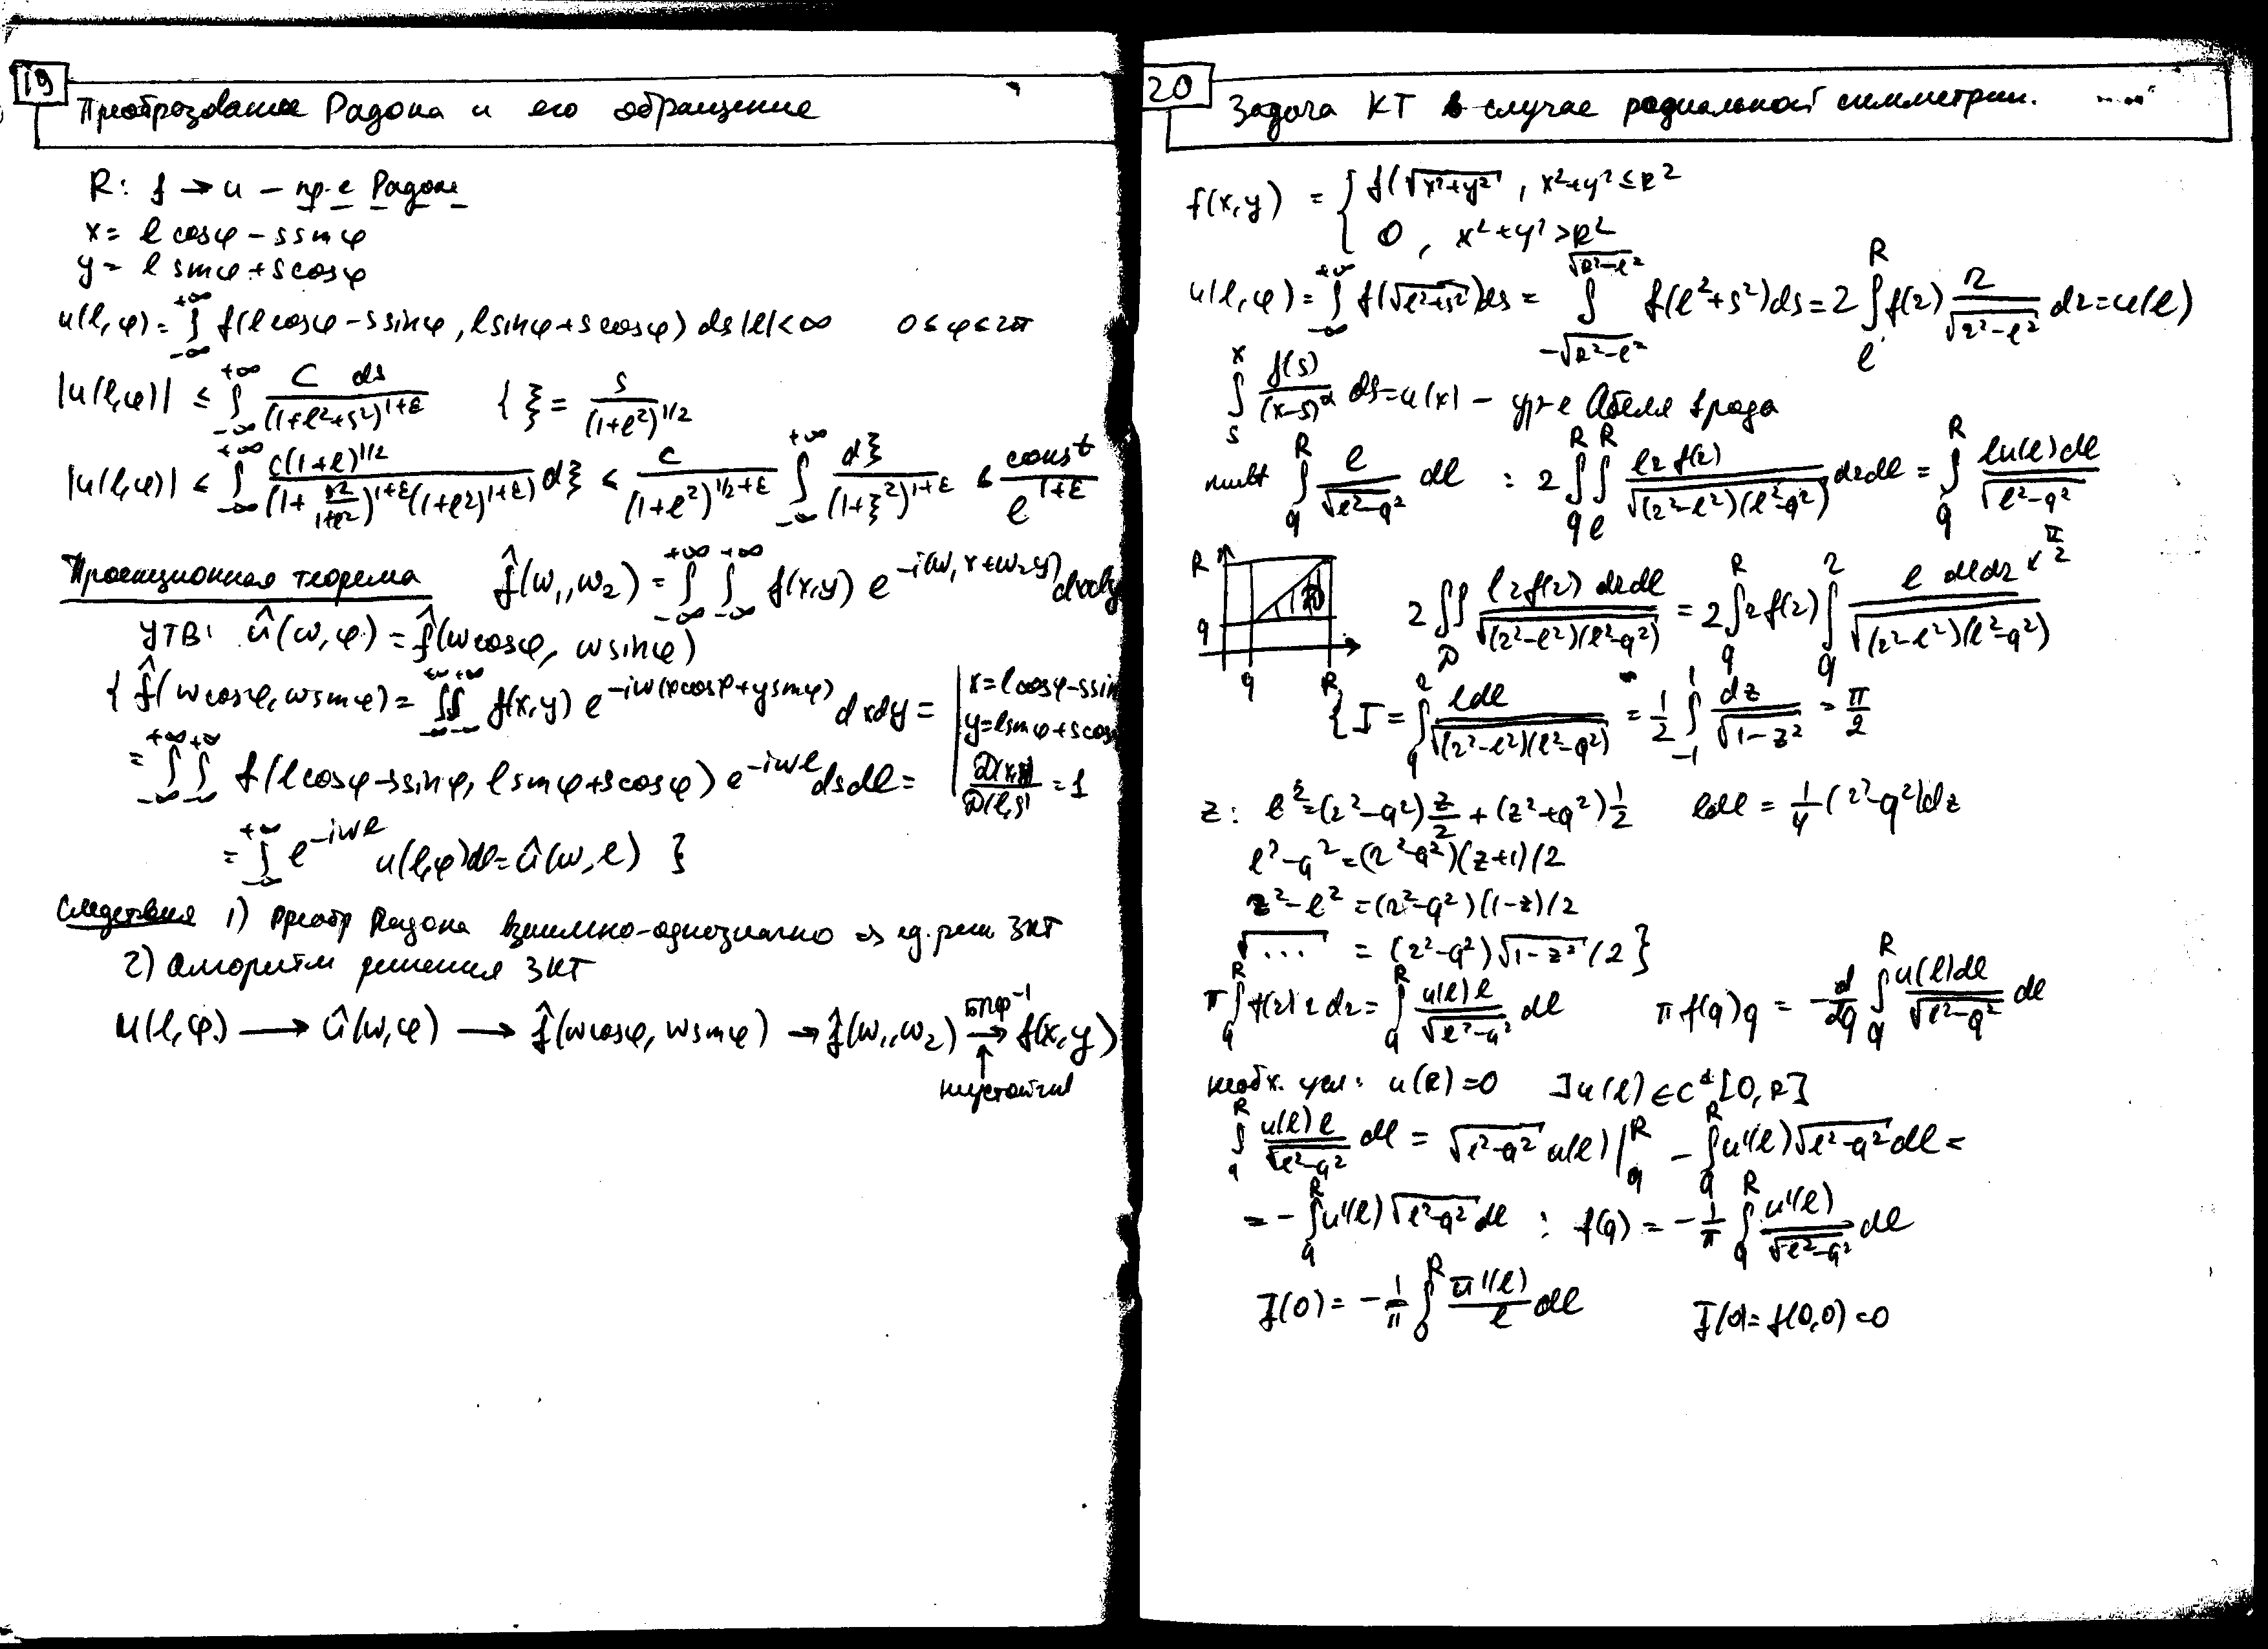 19
Преобразование Радона и его обращение
R: f → u – пр-е Радона
x = l cosφ – s sinφ
y = l sinφ + s cosφ
u(l,φ) = ∫_{-∞}^{+∞} f(l cosφ – s sinφ, l sinφ + s cosφ) ds |l| < ∞ 0 ≤ φ ≤ 2π
|u(l,φ)| ≤ ∫_{-∞}^{+∞} C ds / (1+l²+s²)^{1+ε} { ξ = s / (1+l²)^{1/2}
|u(l,φ)| ≤ ∫_{-∞}^{+∞} c(1+l)^{1/2} / (1+ /(1+l²))^{1+ε}(1+l²)^{1+ε}) dξ ≤ c / (1+l²)^{1/2+ε} ∫_{-∞}^{+∞} dξ / (1+ξ²)^{1+ε} ≤ const / l^{1+ε}
Проекционная теорема f̂(ω₁,ω₂) = ∫_{-∞}^{+∞} ∫_{-∞}^{+∞} f(x,y) e^{-i(ω₁x+ω₂y)} dxdy
УТВ: û(ω,φ) = f̂(ωcosφ, ωsinφ)
{ f̂(ωcosφ, ωsinφ) = ∫∫_{-∞}^{+∞} f(x,y) e^{-iω(xcosφ+ysinφ)} dxdy = | x = l cosφ – s sin
y = l sinφ + s cos
= ∫_{-∞}^{+∞} ∫_{-∞}^{+∞} f(l cosφ – s sinφ, l sinφ + s cosφ) e^{-iωl} dsdl = | D(x,y)/D(l,s) = 1
= ∫_{-∞}^{+∞} e^{-iωl} u(l,φ)dl = û(ω,l) }
Следствия 1) Преобр Радона взаимно-однозначно ⇒ ед. реш ЗКТ
2) Алгоритм решения ЗКТ
u(l,φ) → û(ω,φ) → f̂(ωcosφ, ωsinφ) → f̂(ω₁,ω₂) →^{БПФ⁻¹} f(x,y)
↑
неустойчив
20
Задача КТ в случае радиальной симметрии.
f(x,y) = { f(√(x²+y²), x²+y² ≤ R²
0, x²+y² > R²
u(l,φ) = ∫_{-∞}^{+∞} f(√(l²+s²))ds = ∫_{-√(R²-l²)}^{√(R²-l²)} f(l²+s²)ds = 2 ∫_l^R f(r) r/√(r²-l²) dr = u(l)
∫_s^x f(s)/(x-s)^α ds = u(x) – ур-е Абеля 1 рода
mult ∫_q^R l/√(l²-q²) dl : 2 ∫_q^R ∫_l^R l r f(r)/√((r²-l²)(l²-q²)) drdl = ∫_q^R lu(l)dl/√(l²-q²)
R q q R
2 ∬_D l r f(r) drdl/√((r²-l²)(l²-q²)) = 2 ∫_q^R r f(r) ∫_q^r l dldr/√((r²-l²)(l²-q²)) π/2
{ J = ∫_q^r ldl/√((r²-l²)(l²-q²)) = 1/2 ∫_{-1}^1 dz/√(1-z²) = π/2
z: l² = (r²-q²) z/2 + (r²+q²) 1/2 ldl = 1/4 (r²-q²)dz
l²-q² = (r²-q²)(z+1)/2
r²-l² = (r²-q²)(1-z)/2
√... = (r²-q²)√(1-z²)/2 }
π ∫_q^R f(r) r dr = ∫_q^R u(l)l/√(l²-q²) dl π f(q)q = – d/dq ∫_q^R u(l)dl/√(l²-q²) dl
необх. усл: u(R) = 0 ∃u(l) ∈ C¹[0,R]
∫_q^R u(l)l/√(l²-q²) dl = √(l²-q²) u(l)|_q^R – ∫_q^R u'(l)√(l²-q²) dl =
= – ∫_q^R u'(l)√(l²-q²) dl : f(q) = – 1/π ∫_q^R u'(l)/√(l²-q²) dl
f(0) = – 1/π ∫_0^R ū'(l)/l dl f(0) = f(0,0) = 0